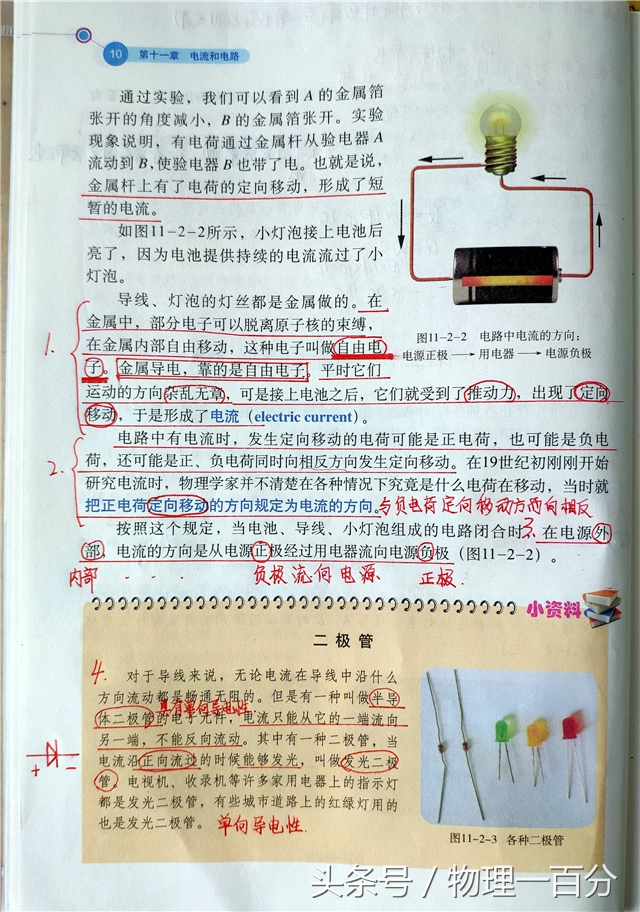 10 第十一章 电流和电路
通过实验，我们可以看到 A 的金属箔
张开的角度减小，B 的金属箔张开。实验
现象说明，有电荷通过金属杆从验电器 A
流动到 B，使验电器 B 也带了电。也就是说，
金属杆上有了电荷的定向移动，形成了短
暂的电流。
如图11-2-2所示，小灯泡接上电池后
亮了，因为电池提供持续的电流流过了小
灯泡。
导线、灯泡的灯丝都是金属做的。在
1.
金属中，部分电子可以脱离原子核的束缚，
在金属内部自由移动，这种电子叫做自由电
子。金属导电，靠的是自由电子。平时它们
运动的方向杂乱无章，可是接上电池之后，它们就受到了推动力，出现了定向
移动，于是形成了电流（electric current）。
图11-2-2 电路中电流的方向：
电源正极 → 用电器 → 电源负极
2.
电路中有电流时，发生定向移动的电荷可能是正电荷，也可能是负电
荷，还可能是正、负电荷同时向相反方向发生定向移动。在19世纪初刚刚开始
研究电流时，物理学家并不清楚在各种情况下究竟是什么电荷在移动，当时就
把正电荷定向移动的方向规定为电流的方向。与负电荷定向移动方向相反
按照这个规定，当电池、导线、小灯泡组成的电路闭合时3.，在电源外
部，电流的方向是从电源正极经过用电器流向电源负极（图11-2-2）。
内部 . . . 负极流向电源 正极.
小资料
二极管
4.
对于导线来说，无论电流在导线中沿什么
方向流动都是畅通无阻的。但是有一种叫做半导
具有单向导电性.
体二极管的电子元件，电流只能从它的一端流向
另一端，不能反向流动。其中有一种二极管，当
电流沿正向流过的时候能够发光，叫做发光二极
管。电视机、收录机等许多家用电器上的指示灯
都是发光二极管，有些城市道路上的红绿灯用的
也是发光二极管。 单向导电性.
+ −
图11-2-3 各种二极管
头条号 / 物理一百分